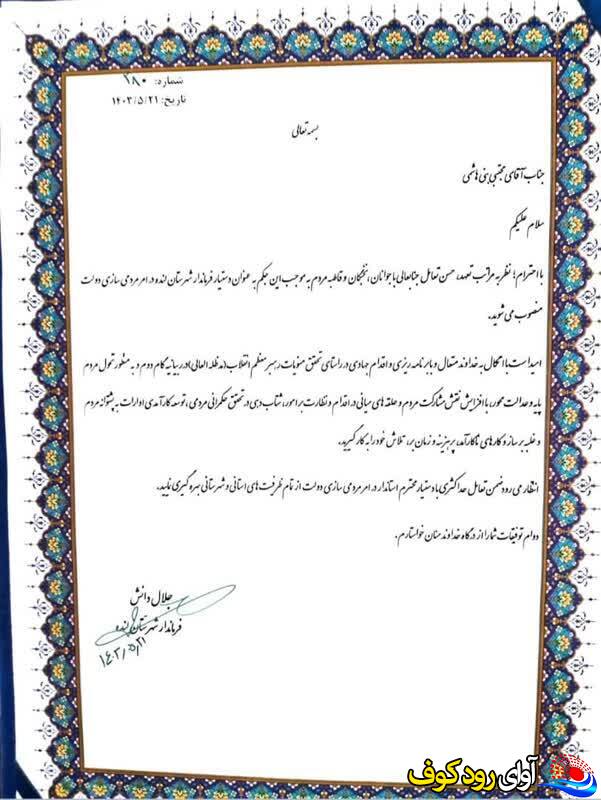 شماره: ۳۸۰
تاریخ: ۱۴۰۳/۵/۲۱
بسمه تعالی
جناب آقای مجتبی بنی هاشمی
سلام علیکم
با احترام؛ نظر به مراتب تعهد، حسن تعامل جنابعالی با جوانان، نخبگان و قاطبه مردم به موجب این حکم به عنوان دستیار فرماندار شهرستان لنده در امر مردمی سازی دولت
منصوب می شوید.
امید است با اتکال به خداوند متعال و با برنامه ریزی و اقدام جهادی در راستای تحقق منویات رهبر معظم انقلاب(مدظله العالی)در بیانیه گام دوم و به منظور تحول مردم
پایه و عدالت محور، با افزایش نقش مشارکت مردم و حلقه های میانی در اقدام و نظارت بر امور، شتاب دهی در تحقق حکمرانی مردمی، توسعه کارآمدی ادارات به پشتوانه مردم
و غلبه بر ساز و کارهای ناکارآمد، پرهزینه و زمان بر، تلاش خود را به کار گیرید.
انتظار می رود ضمن تعامل حداکثری با دستیار محترم استاندار در امر مردمی سازی دولت از تمام ظرفیت های استانی و شهرستانی بهره گیری نمایید.
دوام توفیقات شما را از درگاه خداوند منان خواستارم.
جلال دانش
فرماندار شهرستان لنده
۱۴۰۳/۵/۲۱
آوای رود کوف